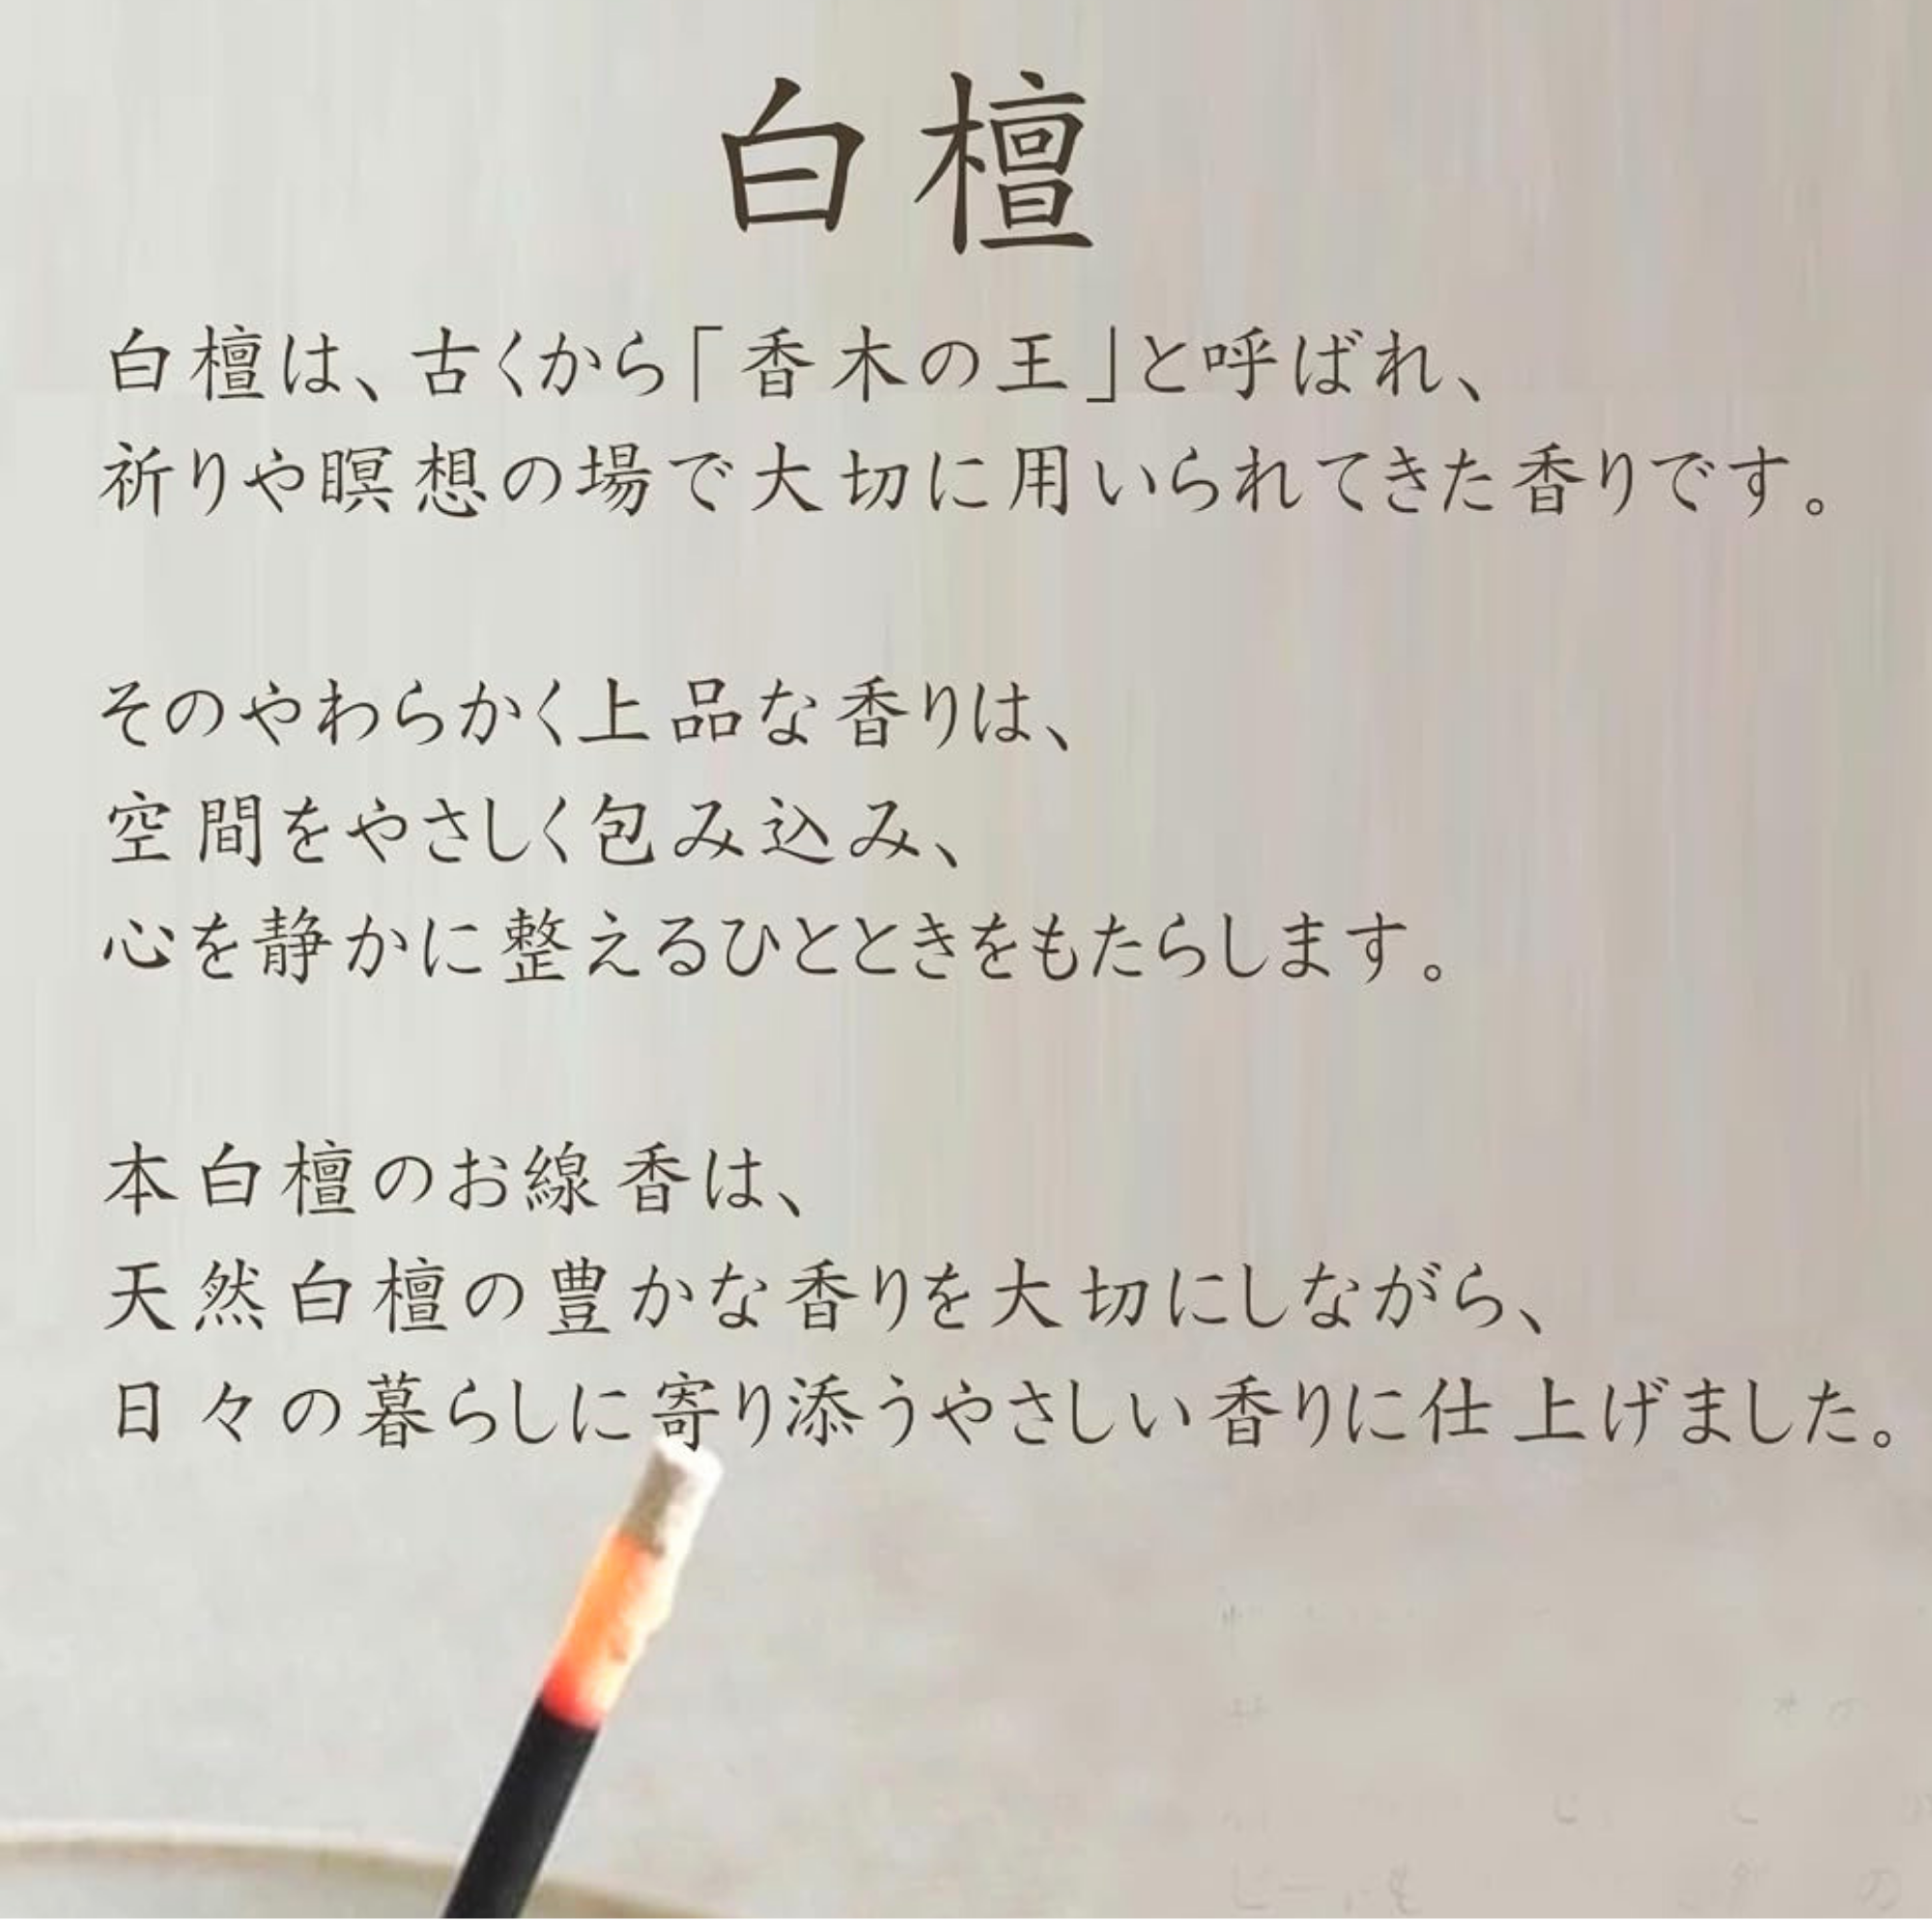 白檀
白檀は、古くから「香木の王」と呼ばれ、
祈りや瞑想の場で大切に用いられてきた香りです。
そのやわらかく上品な香りは、
空間をやさしく包み込み、
心を静かに整えるひとときをもたらします。
本白檀のお線香は、
天然白檀の豊かな香りを大切にしながら、
日々の暮らしに寄り添うやさしい香りに仕上げました。